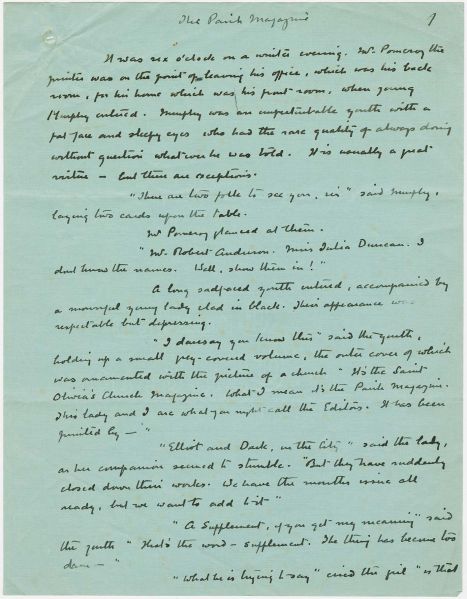 The Parish Magazine
1
It was six o'clock on a winter evening. Mr Pomeroy the
printer was on the point of leaving his office, which was his back
room, for his home which was his front room, when young
Murphy entered. Murphy was an imperturbable youth with a
fat face and sleepy eyes who had the rare quality of always doing
without question whatever he was told. It is usually a great
virtue – but there are exceptions.
"There are two folk to see you, sir" said Murphy,
laying two cards upon the table.
Mr Pomeroy glanced at them.
"Mr Robert Anderson. Miss Julia Duncan. I
dont know the names. Well, show them in!"
A long sadfaced youth entered, accompanied by
a mournful young lady clad in black. Their appearance was
respectable but depressing.
"I daresay you know this" said the youth,
holding up a small grey-covered volume, the outer cover of which
was ornamented with the picture of a church "It's the Saint
Olivia's Church Magazine. What I mean it's the Parish Magazine.
This lady and I are what you might call the Editors. It has been
printed by — "
"Elliot and Dark, in the City" said the lady,
as her companion seemed to stumble. "But they have suddenly
closed down their works. We have the months issue all
ready, but we want to add to it"
"A Supplement, if you get my meaning" said
the youth "That's the word – supplement. The thing has become too
darn — "
"What he is trying to say" cried the girl "is that